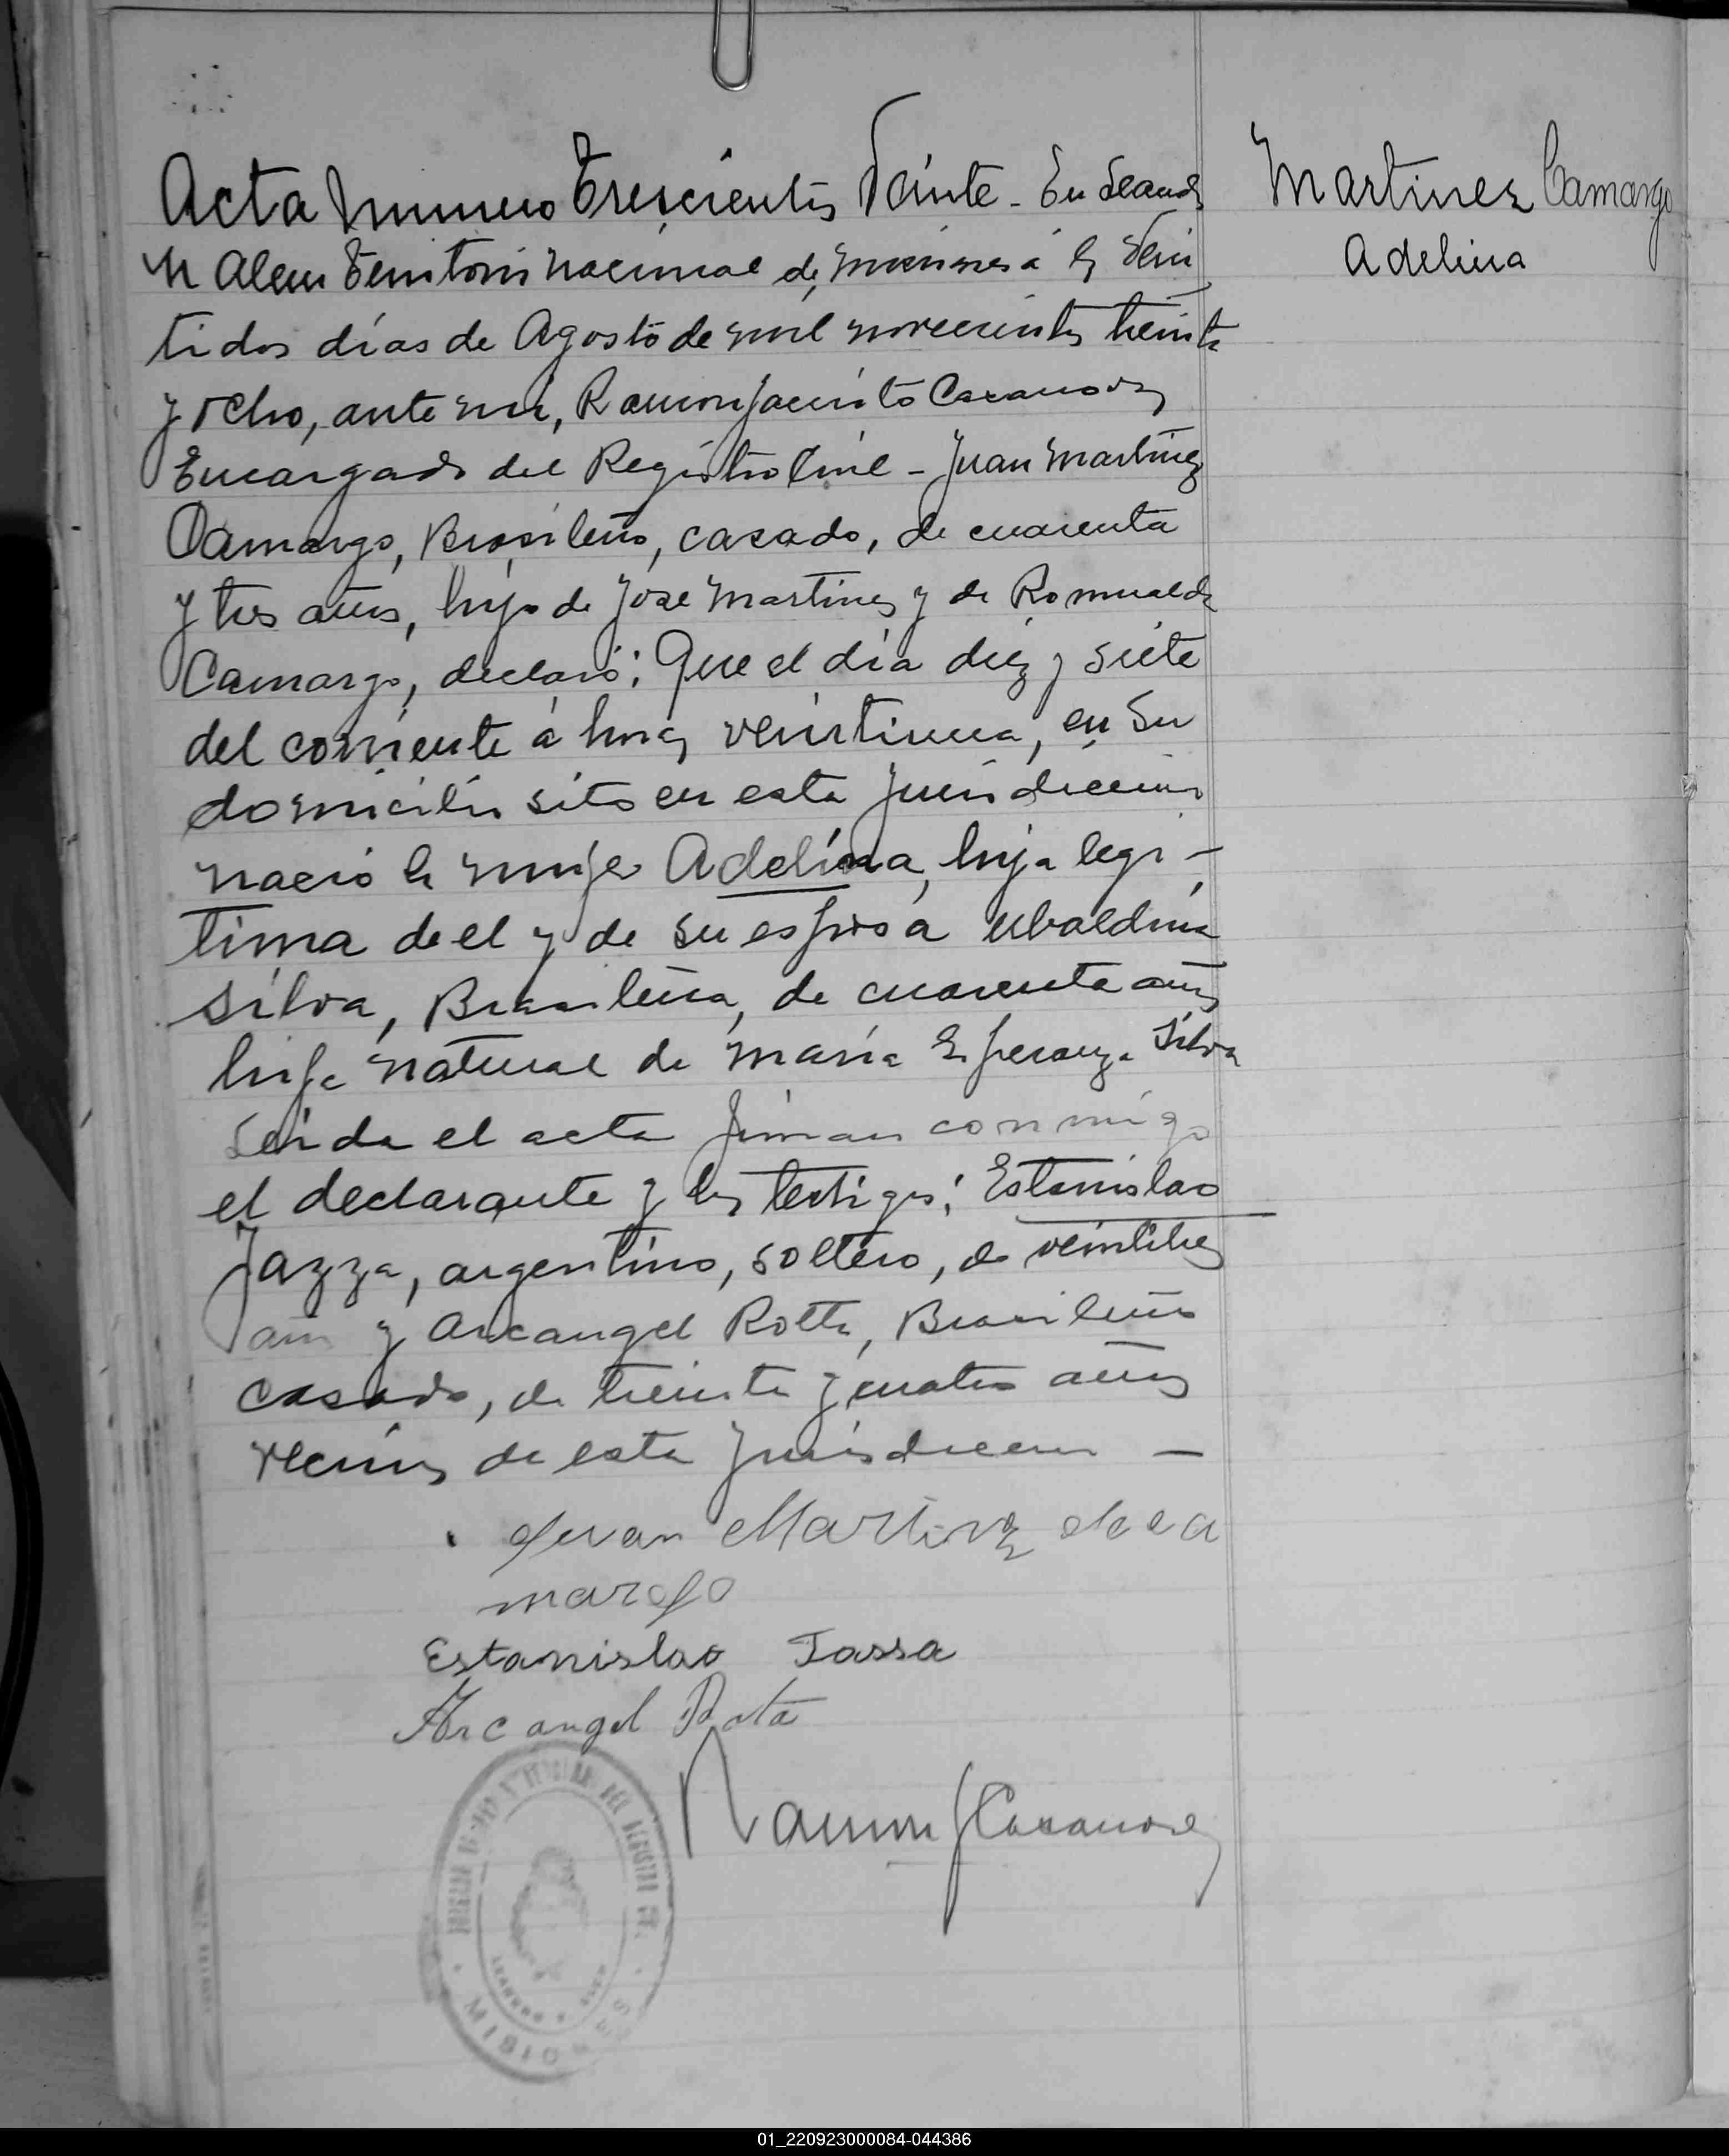 Acta Numero Trescientos Veinte - En Leandro
Martinez Camargo
N Alem Territorio Nacional de Misiones á los Vein
Adelina
tidos días de Agosto de mil novecientos treinta
y ocho, ante mi, Ramon Jacinto Casanova
Encargado del Registro Civil - Juan Martinez
Camargo, Brasileño, casado, de cuarenta
y tres años, hijo de José Martinez y de Romualda
Camargo, declaró: Que el día diez y siete
del corriente á horas veintiuna, en su
domicilio sito en esta jurisdiccion
nació la mujer Adelina, hija legi-
tima de el y de su esposa Ubaldina
Silva, Brasileña, de cuarenta años
hija natural de María Esperanza Silva
Leida el acta firman conmigo
el declarante y los testigos: Estanislao
Jazza, argentino, soltero, de veintitres
años y Arcangel Rotta, Brasileño
casado, de treinta y cuatro años
vecinos de esta jurisdiccion -
Juan Martinez de ca
margo
Estanislao Tassa
Arcangel Rota
Ramon J Casanova
DEL REGISTRO CIVIL
LEANDRO N. ALEM
MISIONES
01_220923000084-044386